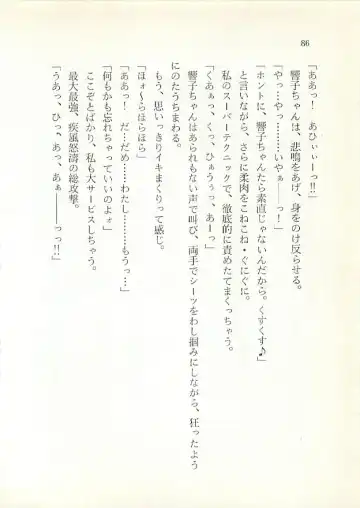 86
「ああっ！　あひぃぃーっ!!」
響子ちゃんは、悲鳴をあげ、身をのけ反らせる。
「やっ…やっ……いやぁ　　っ！」
「ホントに、響子ちゃんたら素直じゃないんだから。くすくす♪」
と言いながら、さらに柔肉をこねこね・ぐにぐに。
私のスーパーテクニックで、徹底的に責めたてまくっちゃう。
「くあぁっ、くっ、ひぁうぅっ、あーっ」
響子ちゃんはあられもない声で叫び、両手でシーツをわし掴みにしながら、狂ったよう
にのたうちまわる。
もう、思いっきりイキまくりって感じ。
「ほォ～らほらほら」
「ああっ！　だ…だめ……わたし………もうっ…」
「何もかも忘れちゃっていいのよォ」
ここぞとばかり、私も大サービスしちゃう。
最大最強、疾風怒濤の総攻撃。
「うあっ、ひっ、あっ、あぁ――っっ!!」